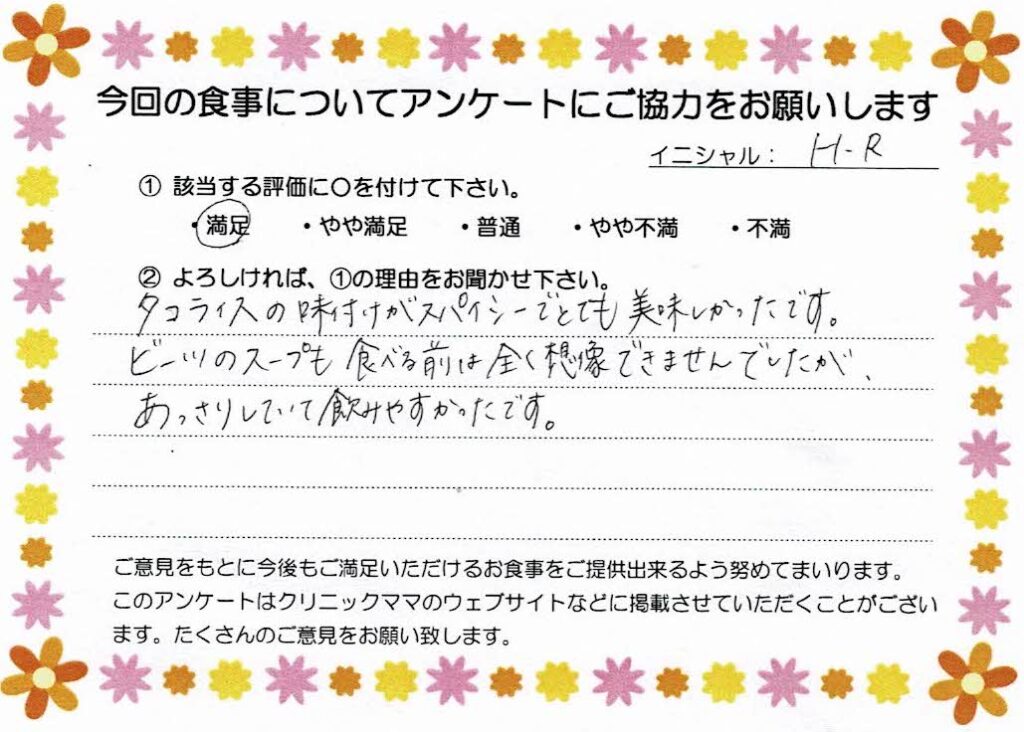 今回の食事についてアンケートにご協力をお願いします
イニシャル： H-R
① 該当する評価に○を付けて下さい。
・満足 ・やや満足 ・普通 ・やや不満 ・不満
② よろしければ、①の理由をお聞かせ下さい。
タコライスの味付けがスパイシーでとても美味しかったです。
ビーツのスープも食べる前は全く想像できませんでしたが、
あっさりしていて飲みやすかったです。
ご意見をもとに今後もご満足いただけるお食事をご提供出来るよう努めてまいります。
このアンケートはクリニックママのウェブサイトなどに掲載させていただくことがござい
ます。たくさんのご意見をお願い致します。